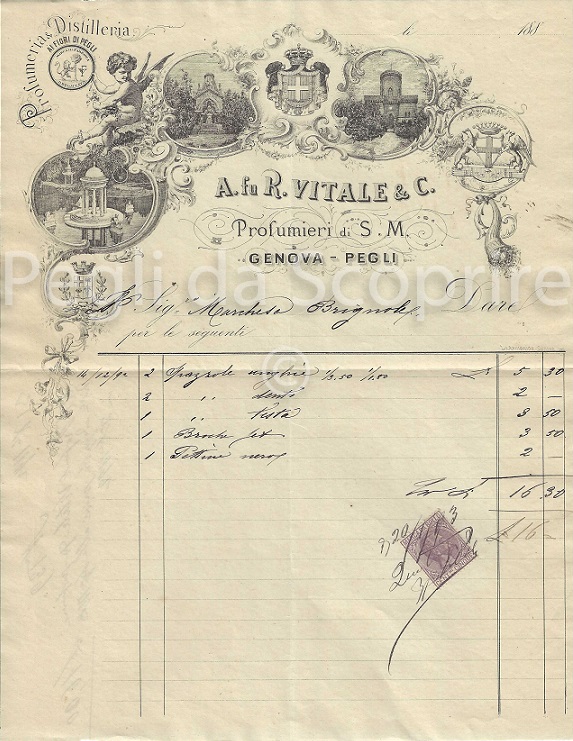 Profumeria & Distilleria
AI FIORI DI PEGLI
li 188
A. fu R. VITALE & C.
Profumieri di S. M.
GENOVA - PEGLI
Pegli da Scoprire
Sig. Marchesa Brignole Dare
per le seguenti
©
2 Spazzole unghie 1/3.50 1/1.80 £ 5 30
2 " denti 2 —
1 " testa 3 50
1 Broche 3 50
1 Pettine nero 2 —
£ 16 30
£ 16 —